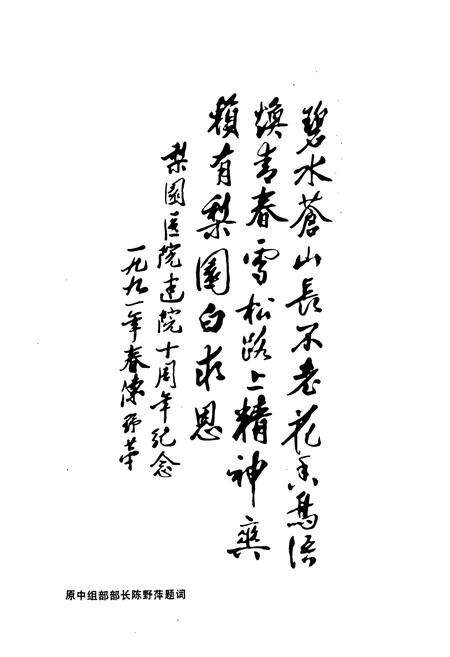 碧水苍山長不老花香鳥语
焕青春雪松路上精神爽
赖有梨園白求恩
梨園医院建院十周年纪念
一九九一年春陈野苹
原中组部部长陈野萍题词